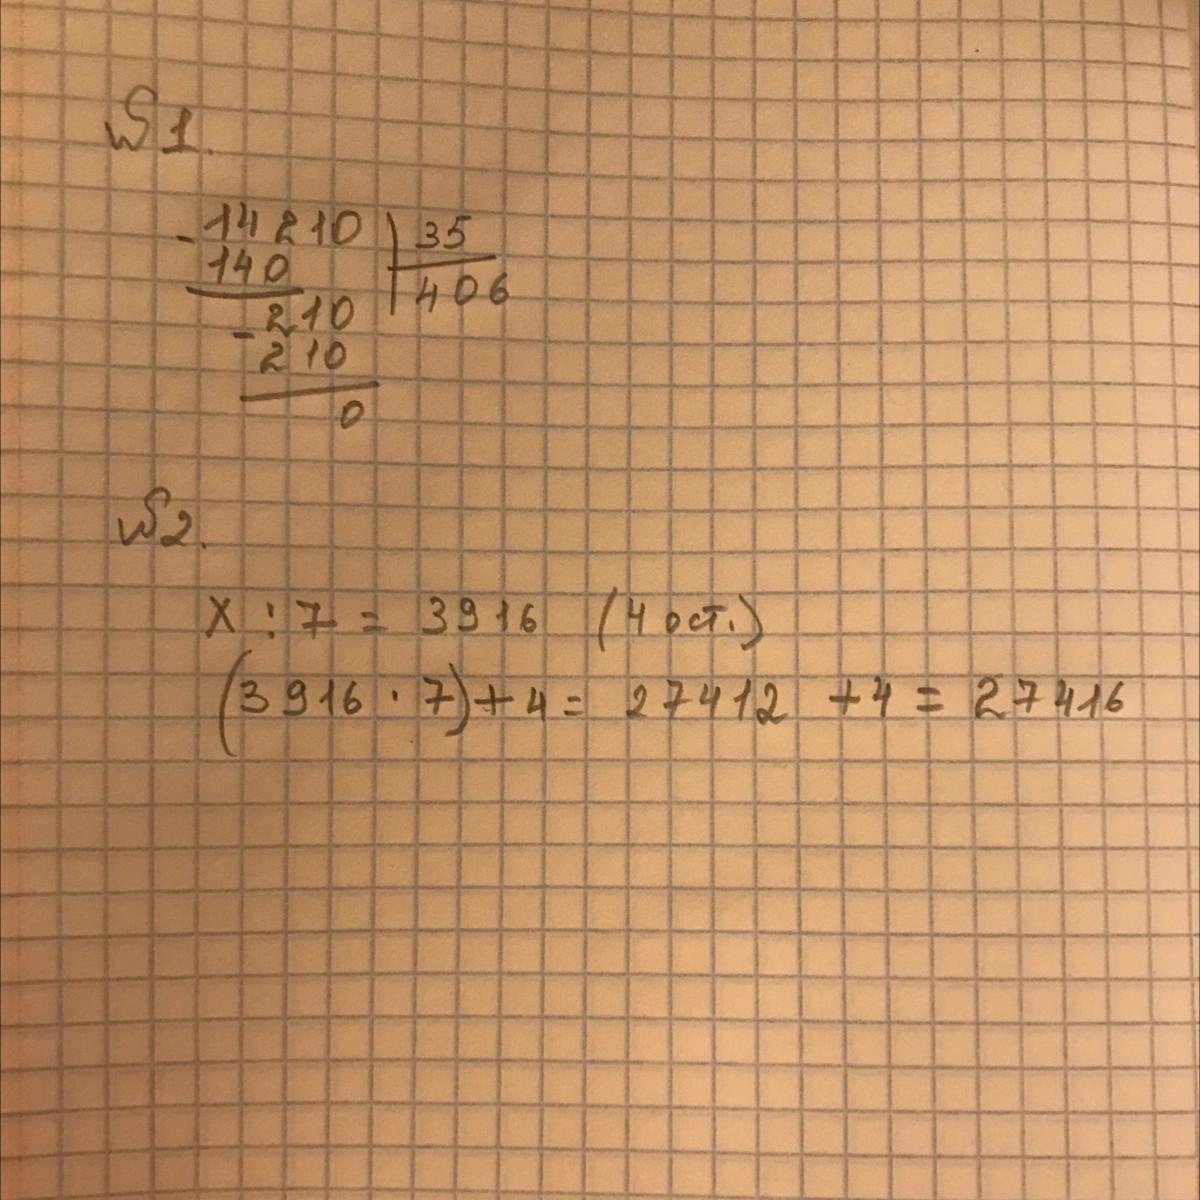 №1.
-14210 | 35
140 | 406
-210
210
0
№2.
X : 7 = 3916 (4 ост.)
(3916 · 7) + 4 = 27412 + 4 = 27416